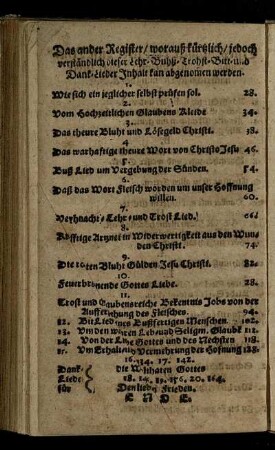 Das ander Register/ worauß kürtzlich/ jedoch
verständlich dieser Lehr- Buhß- Trohst- Bitt- und
Dank-Lieder Inhalt kan abgenomen werden.
1.
Wie sich ein jeglicher selbst prüfen sol. 28.
2.
Vom Hochzeitlichen Glaubens Kleide 34.
3.
Das theure Bluht und Lösegeld Christi. 38.
4.
Das warhaftige theure Wort von Christo Jesu 46.
5.
Buß Lied um Vergebung der Sünden. 54.
6.
Daß das Wort Fleisch worden um unser Hoffnung
willen. 60.
7.
Weyhnacht- Lehr- und Trost Lied. 66.
8.
Kräfftige Artznei in Widerwertigkeit aus den Wun-
den Christi. 74.
9.
Die Bluht Gülden Jesu Christi. 82.
10.
Feuerbrennende Gottes Liebe. 28.
11.
Trost und Glaubensreiche Bekentnis Jobs von der
Aufferstehung des Fleisches. 94.
12. Bit Lied eines Bußfertigen Menschen. 102.
13. Um den wahren Glaub und Seligm. Glaube 112.
14. Von der Liebe Gottes und des Nechsten 118.
15. Um Erhaltung Vermehrung der Hofnung 128.
16. 134. 17. 142.
Dank- die Wolthaten Gottes
Lieder 18. 19. 156. 20. 164.
für Den lieben Frieden.
E N D E.